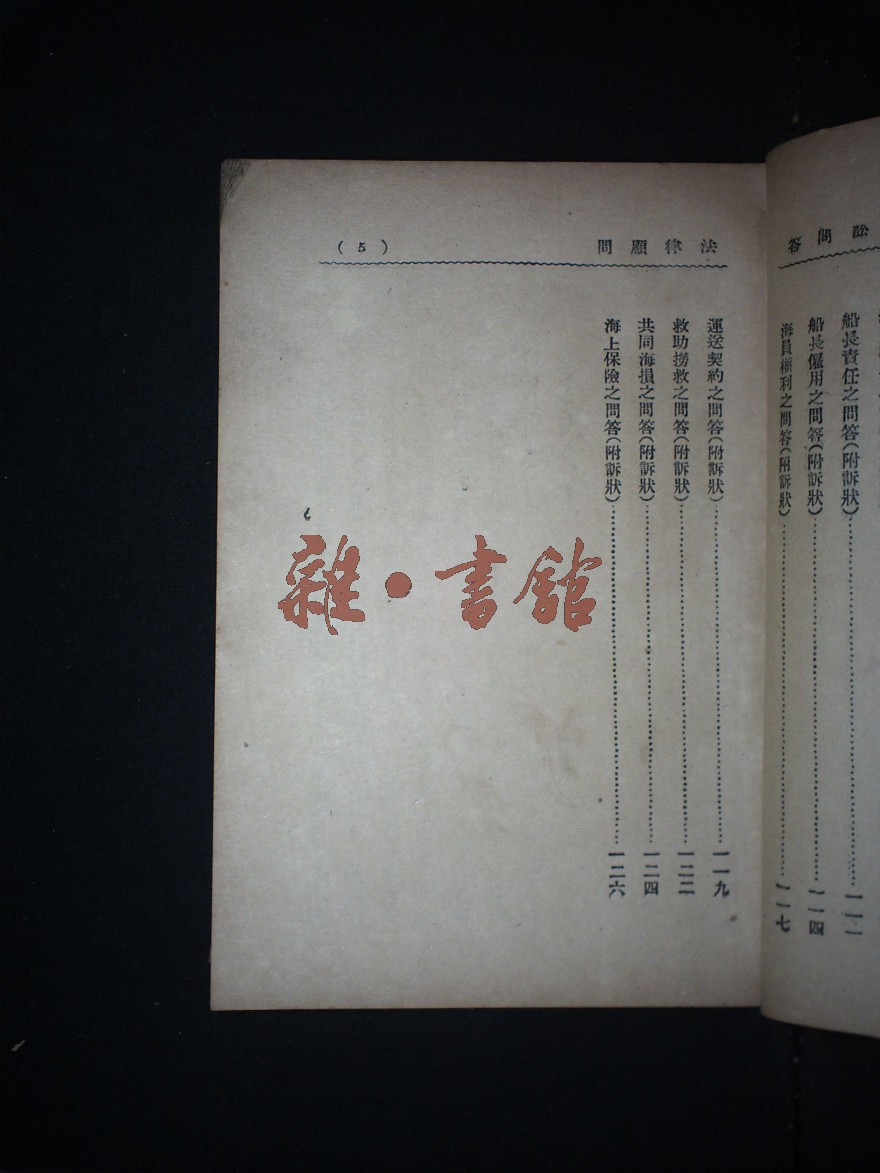 訟問答
船長責任之問答(附訴狀)…………一一一
船長僱用之問答(附訴狀)…………一一四
海員權利之問答(附訴狀)…………一一七
法律顧問 (5)
運送契約之問答(附訴狀)…………一一九
救助撈救之問答(附訴狀)…………一二二
共同海損之問答(附訴狀)…………一二四
海上保險之問答(附訴狀)…………一二六
雜·書館